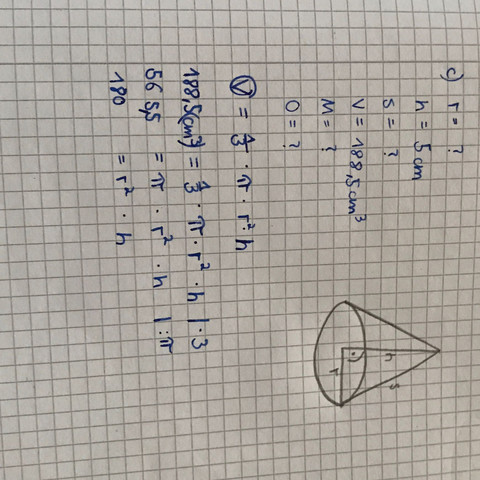 c) r = ?
h = 5 cm
s = ?
V = 188,5 cm³
M = ?
O = ?
h
r
s
V = 1/3 · π · r² · h
188,5(cm³) = 1/3 · π · r² · h | · 3
565,5 = π · r² · h | : π
180 = r² · h